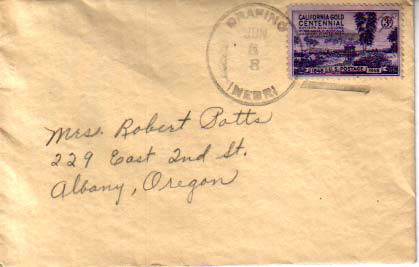 JUN
8
NEBR
CALIFORNIA GOLD
CENTENNIAL
3¢
U.S. POSTAGE
Mrs. Robert Potts
229 East 2nd St.
Albany, Oregon